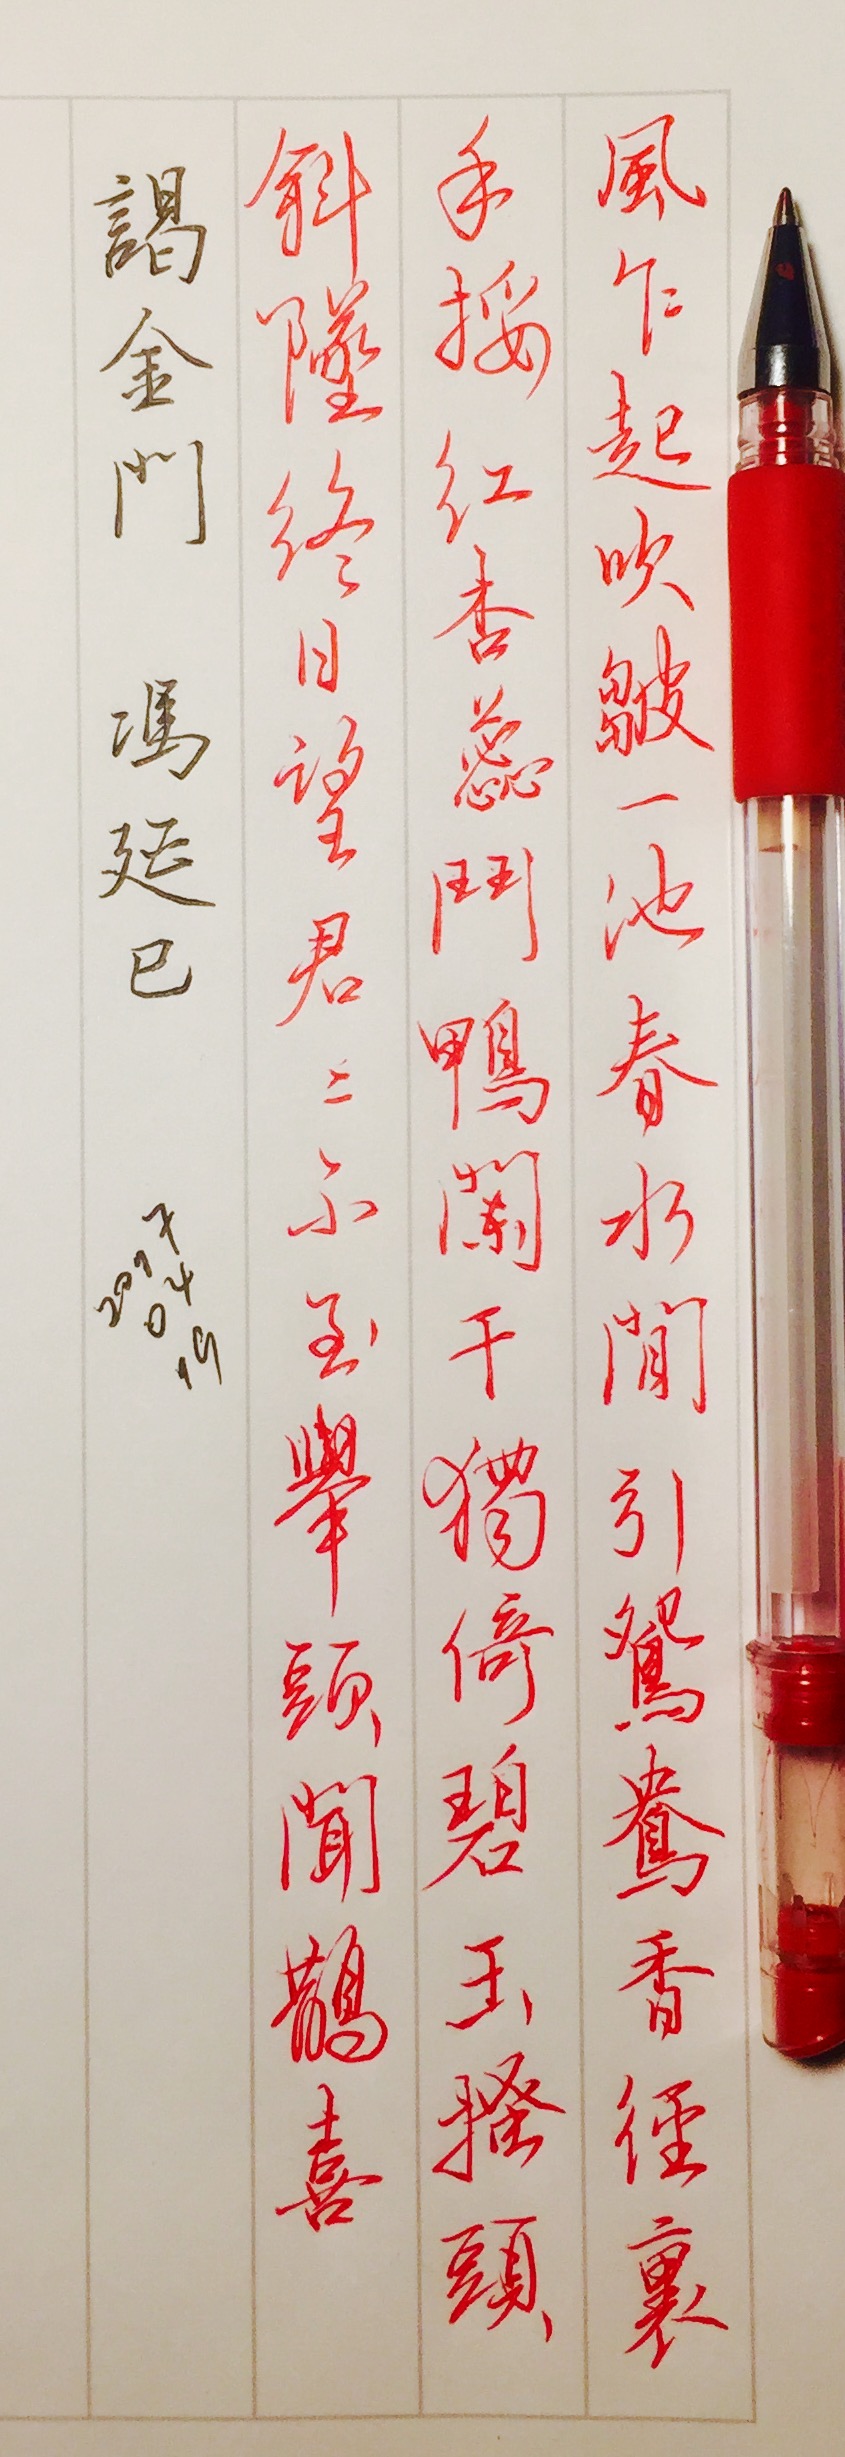 風乍起吹皺一池春水閒引鴛鴦香徑裏
手挼紅杏蕊鬥鴨闌干獨倚碧玉搔頭
斜墜終日望君〻不至舉頭聞鵲喜
謁金門 馮延巳
2017
04
19